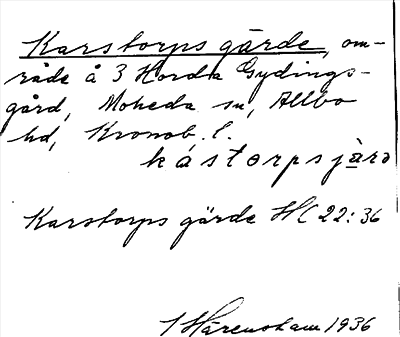 Karstorps gärde, om-
råde å 3 Horda Gydings-
gård, Moheda sn, Allbo
hd, Kronob. l.
kástorpsjàrd
Karstorps gärde HC 22:36
Härensham 1936